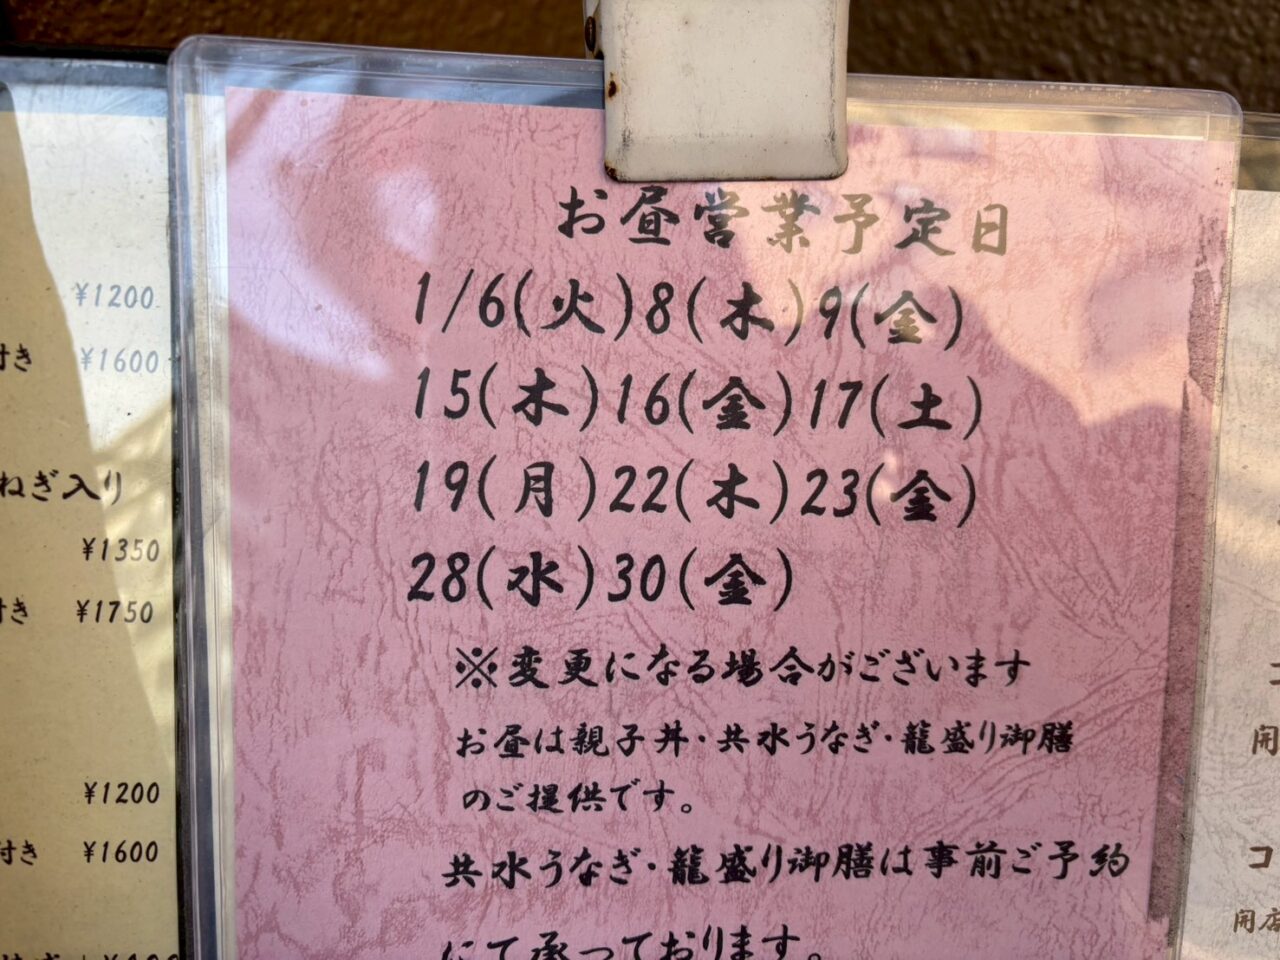 お昼営業予定日
1/6(火)8(木)9(金)
15(木)16(金)17(土)
19(月)22(木)23(金)
28(水)30(金)
※変更になる場合がございます
お昼は親子丼・共水うなぎ・籠盛り御膳
のご提供です。
共水うなぎ・籠盛り御膳は事前ご予約
にて承っております。
¥1200
付き ¥1600
ねぎ入り
¥1350
付き ¥1750
¥1200
付き ¥1600
開
コ
開店